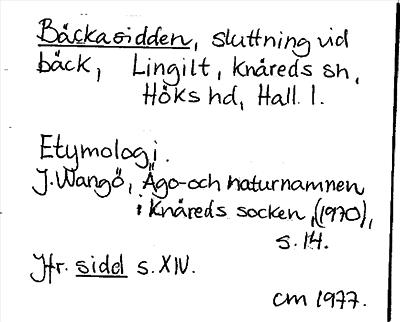 Bäckasidden, sluttning vid
bäck, Lingilt, Knäreds sn,
Höks hd, Hall. l.
Etymologi.
J. Wangö, Ägo- och naturnamnen
i Knäreds socken, (1970),
s. 14.
Jfr. sidd s. XIV.
CM 1977.